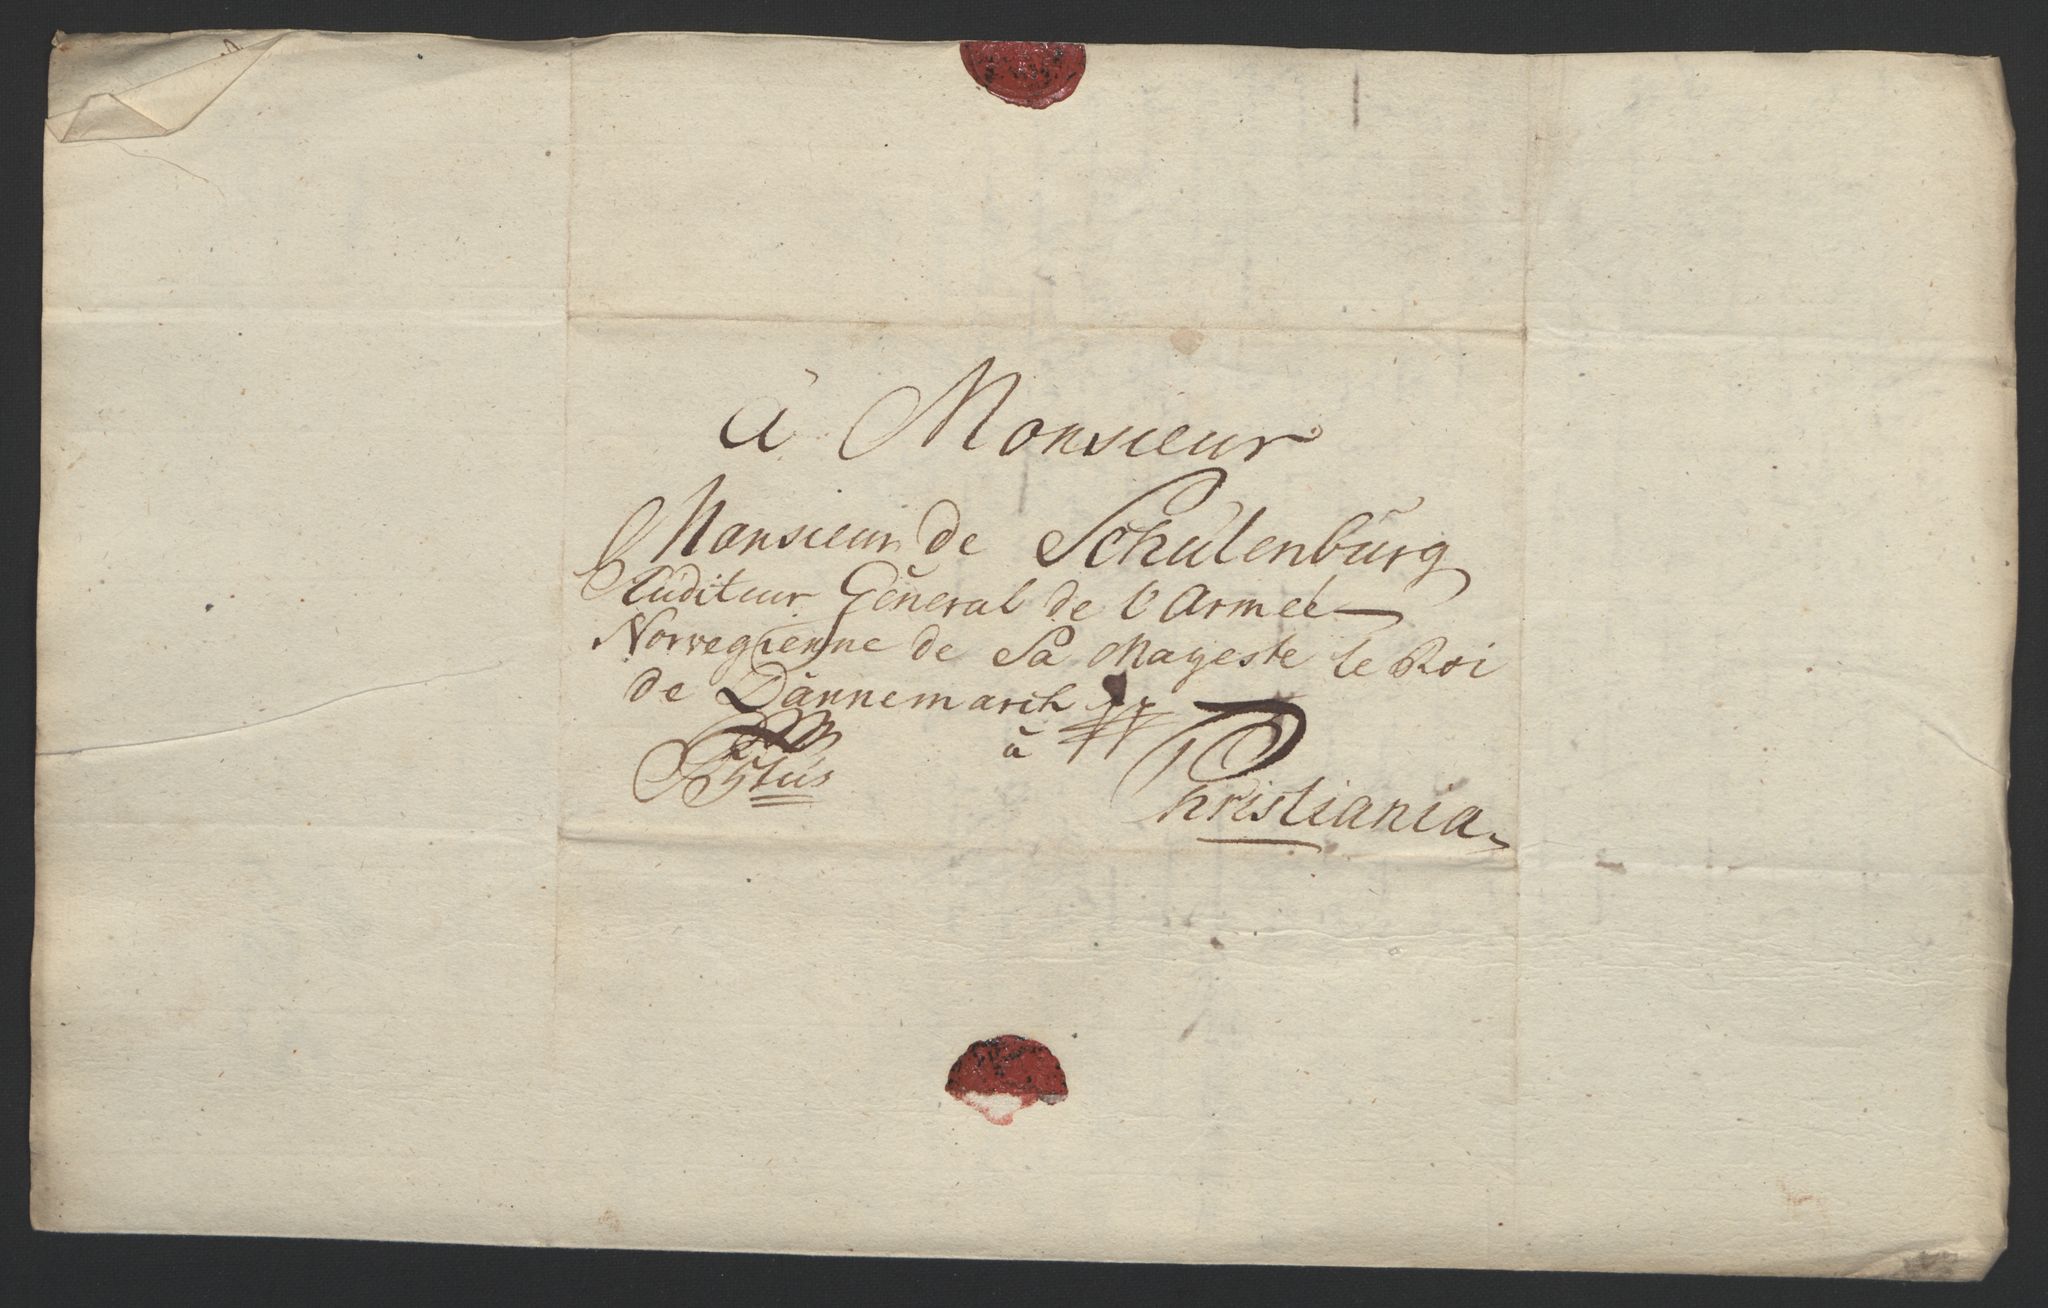 à Monsieur
Monsieur de Schulenburg
Auditeur Géneral de l'Armeé
Norvegienne de Sa Mayeste le Roi
de Dännemarck
à
Christiania